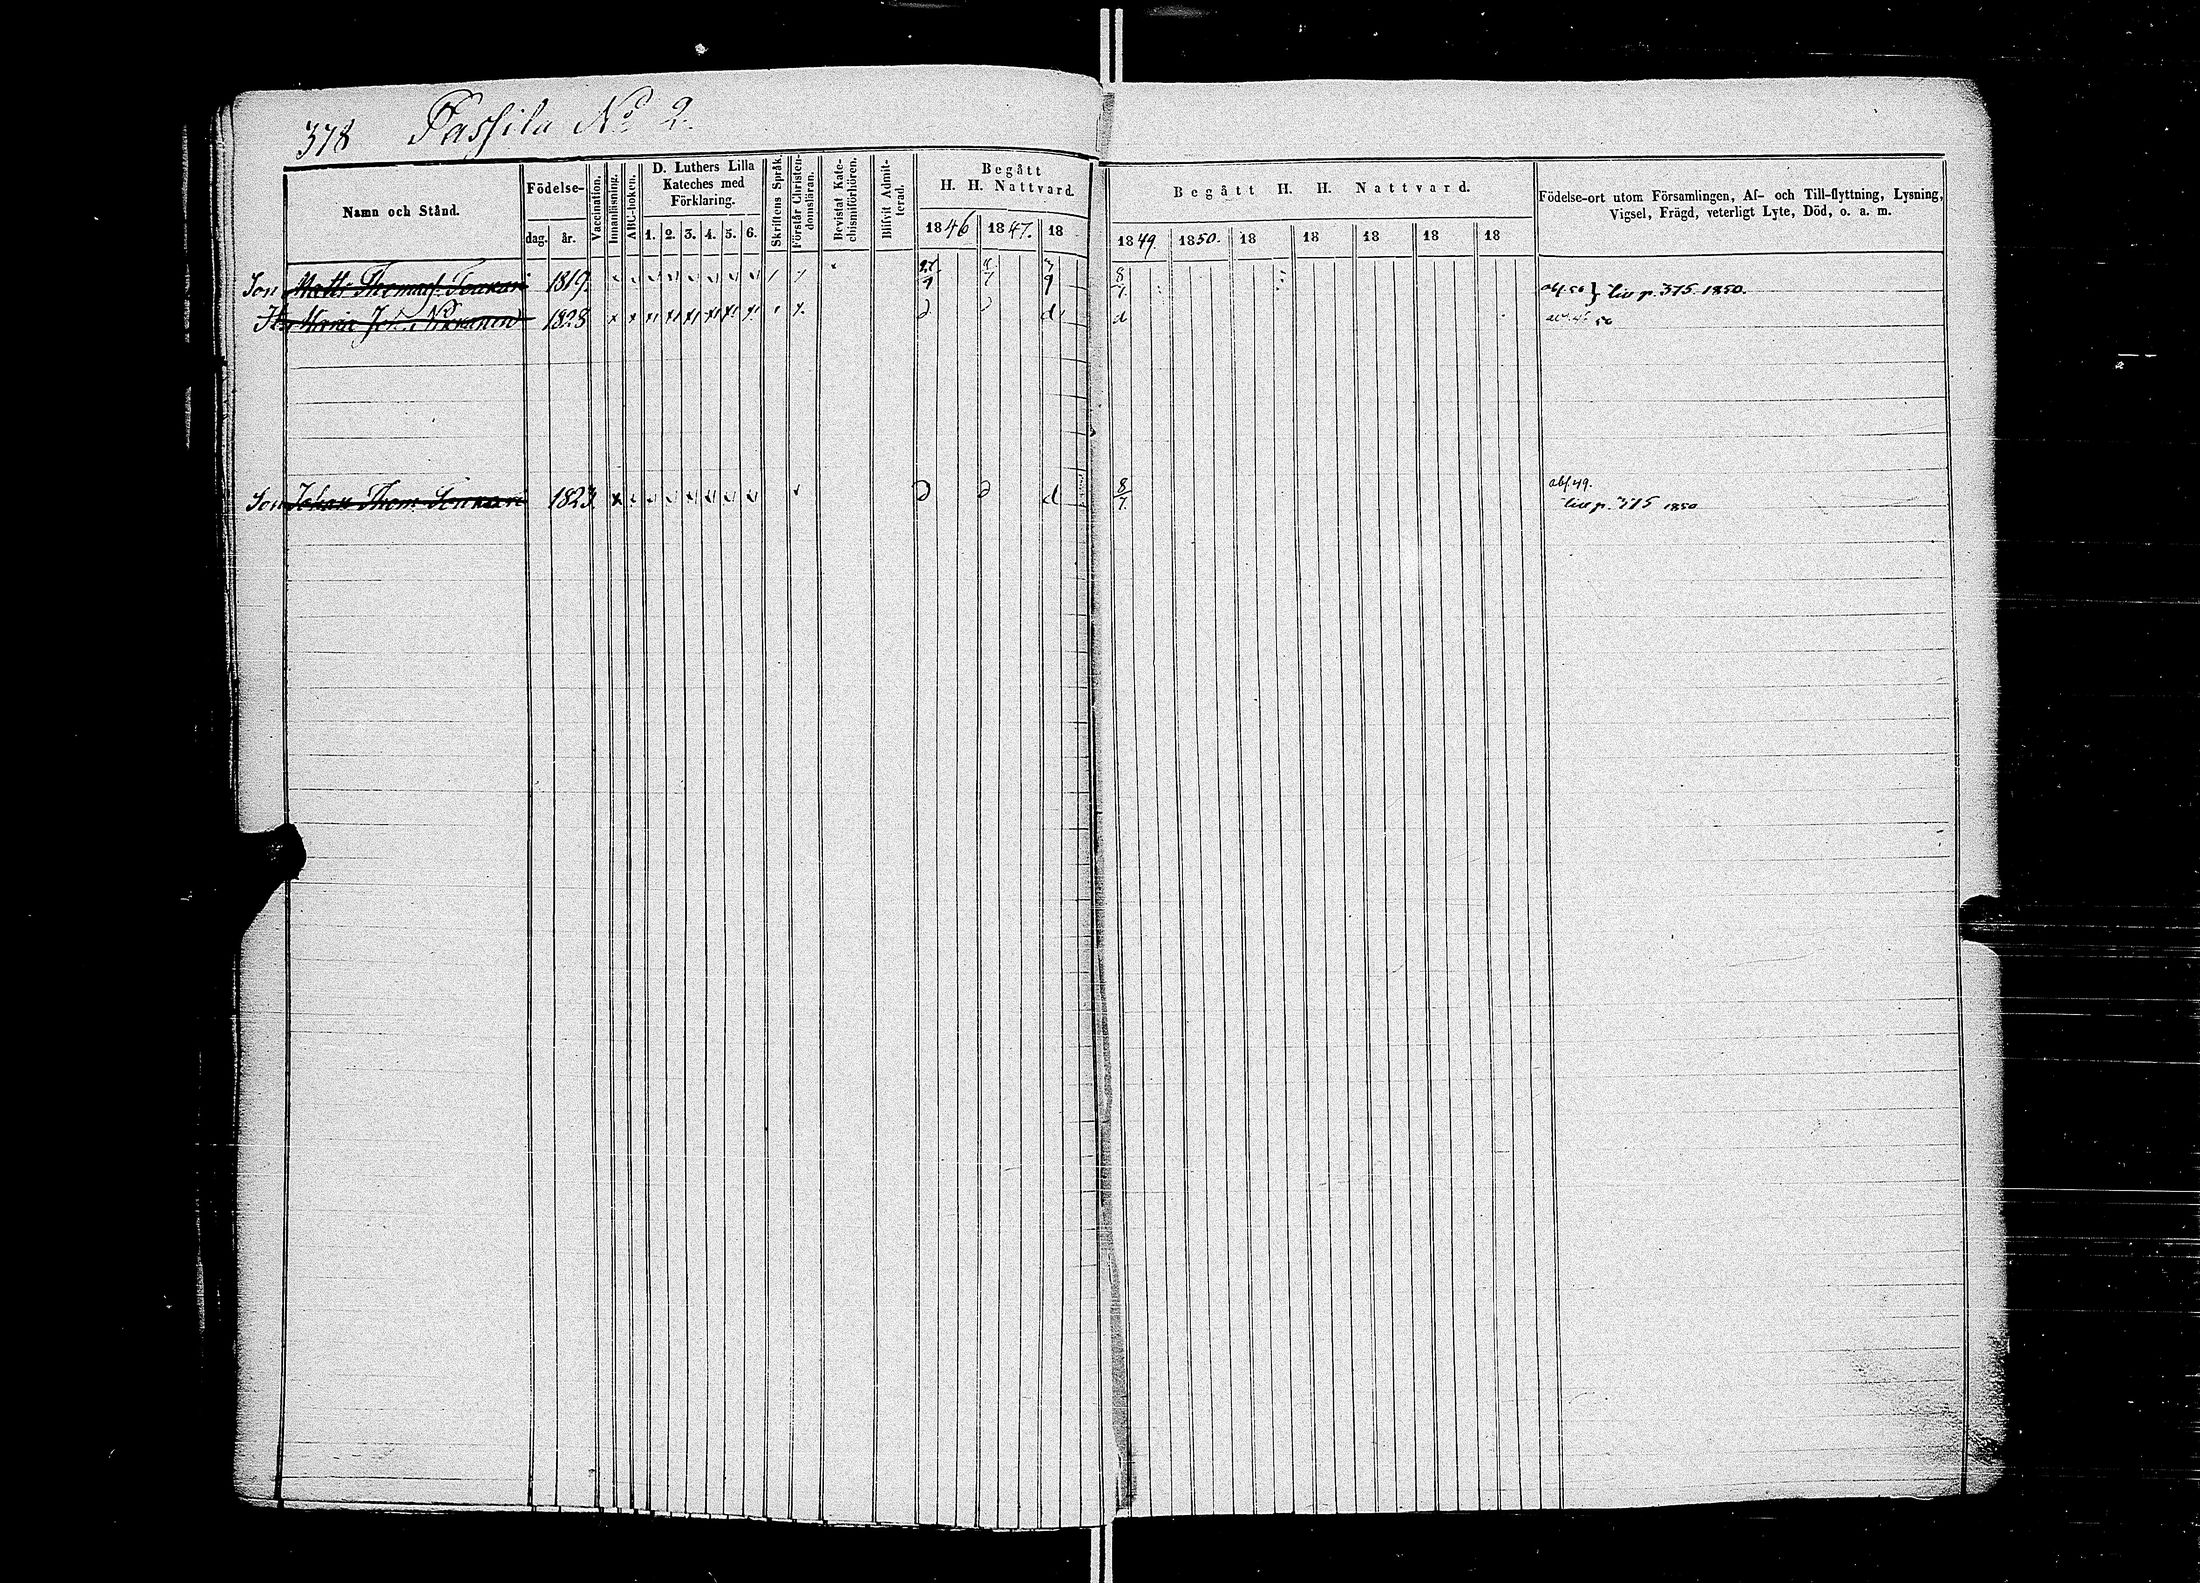 378 Passila No 2.
Namn och Stånd.
Födelse-
dag. år.
Vaccination.
Innanläsning.
ABC-boken.
D. Luthers Lilla
Kateches med
Förklaring.
1. 2. 3. 4. 5. 6.
Skriftens Språk.
Förstår Christen-
domsläran.
Bevistat Kate-
chismiförhören.
Blifvit Admit-
terad.
Begått
H. H. Nattvard.
1846 1847. 18
Begått H. H. Nattvard.
1849. 1850. 18 18 18 18 18
Födelse-ort utom Församlingen, Af- och Till-flyttning, Lysning,
Vigsel, Frägd, veterligt Lyte, Död, o. a. m.
Son Matts Thomass. 1819. 8/7. abs. 50 } liv p. 375. 1850.
H. Maria Joh. 1828 d d 50
Son Johan Thom. 1823. d 8/7. abs. 49.
liv p. 375 1850